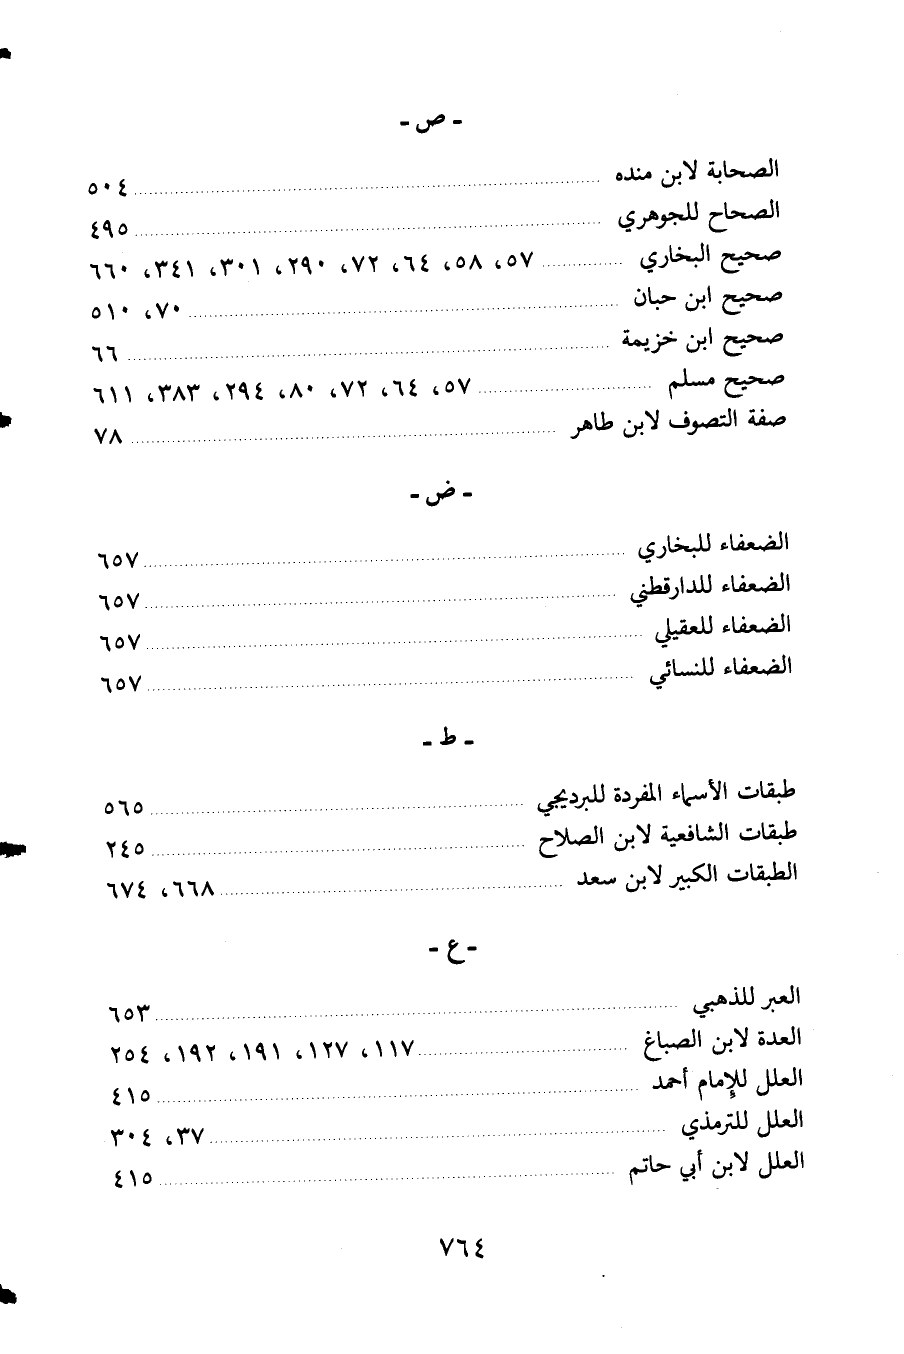 - ص -
الصحابة لابن منده ٥٠٤
الصحاح للجوهري ٤٩٥
صحيح البخاري ٥٧، ٥٨، ٦٤، ٧٢، ٢٩٠، ٣٠١، ٣٤١، ٦٦٠
صحيح ابن حبان ٧٠، ٥١٠
صحيح ابن خزيمة ٦٦
صحيح مسلم ٥٧، ٦٤، ٧٢، ٨٠، ٢٩٤، ٣٨٣، ٦١١
صفة التصوف لابن طاهر ٧٨
- ض -
الضعفاء للبخاري ٦٥٧
الضعفاء للدارقطني ٦٥٧
الضعفاء للعقيلي ٦٥٧
الضعفاء للنسائي ٦٥٧
- ط -
طبقات الأسماء المفردة للبرديجي ٥٦٥
طبقات الشافعية لابن الصلاح ٢٤٥
الطبقات الكبير لابن سعد ٦٦٨، ٦٧٤
- ع -
العبر للذهبي ٦٥٣
العدة لابن الصباغ ١١٧، ١٢٧، ١٩١، ١٩٢، ٢٥٤
العلل للإمام أحمد ٤١٥
العلل للترمذي ٣٧، ٣٠٤
العلل لابن أبي حاتم ٤١٥
٧٦٤